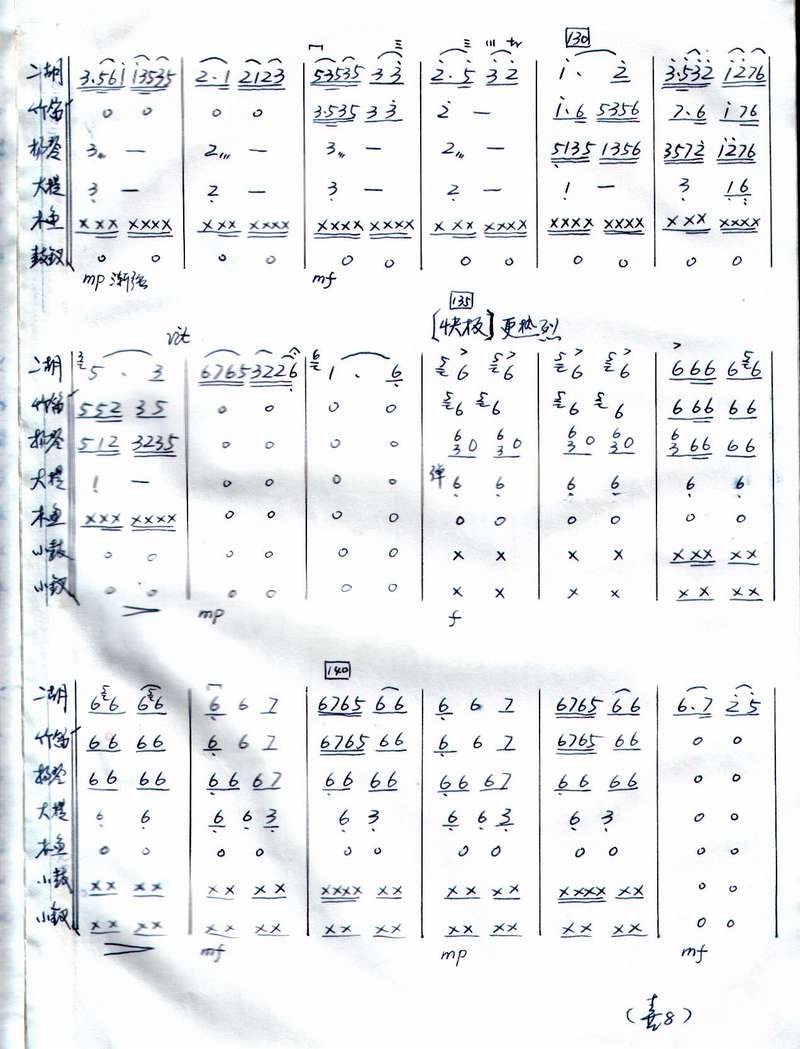 130
二胡 3.561 13535 | 2.1 2123 | 53535 33 | 2.5 32 | 1. 2 | 3.532 1276
竹笛 0 0 | 0 0 | 3.535 33 | 2 — | 1.6 5356 | 7.6 176
扬琴 3 — | 2 — | 3 — | 2 — | 5135 1356 | 3572 1276
大提 3 — | 2 — | 3 — | 2 — | 1 — | 3 16
木鱼 xxx xxxx | xxx xxxx | xxxx xxxx | xxx xxxx | xxxx xxxx | xxx xxxx
鼓钗 0 0 | 0 0 | 0 0 | 0 0 | 0 0 | 0 0
mp 渐强 mf
135
rit [快板] 更热烈
二胡 5. 3 | 6765 3226 | 1. 6 | 6 6 | 6 6 | 666 66
竹笛 552 35 | 0 0 | 0 0 | 6 6 | 6 6 | 666 66
扬琴 512 3235 | 0 0 | 0 0 | 630 630 | 630 630 | 666 66
大提 1 — | 0 0 | 0 0 | 弹 6 6 | 6 6 | 6 6
木鱼 xxx xxxx | 0 0 | 0 0 | 0 0 | 0 0 | 0 0
小鼓 0 0 | 0 0 | 0 0 | x x | x x | xxx xx
小钗 0 0 | 0 0 | 0 0 | x x | x x | xx xx
> mp f
140
二胡 66 66 | 6 6 7 | 6765 66 | 6 6 7 | 6765 66 | 6.7 25
竹笛 66 66 | 6 6 7 | 6765 66 | 6 6 7 | 6765 66 | 0 0
扬琴 66 66 | 66 67 | 66 66 | 66 67 | 66 66 | 0 0
大提 6 6 | 6 6 3 | 6 3 | 6 6 3 | 6 3 | 0 0
木鱼 0 0 | 0 0 | 0 0 | 0 0 | 0 0 | 0 0
小鼓 xx xx | xx xx | xxxx xx | xx xx | xxxx xx | 0 0
小钗 xx xx | xx xx | xx xx | xx xx | xx xx | 0 0
> mf mp mf
(喜8)